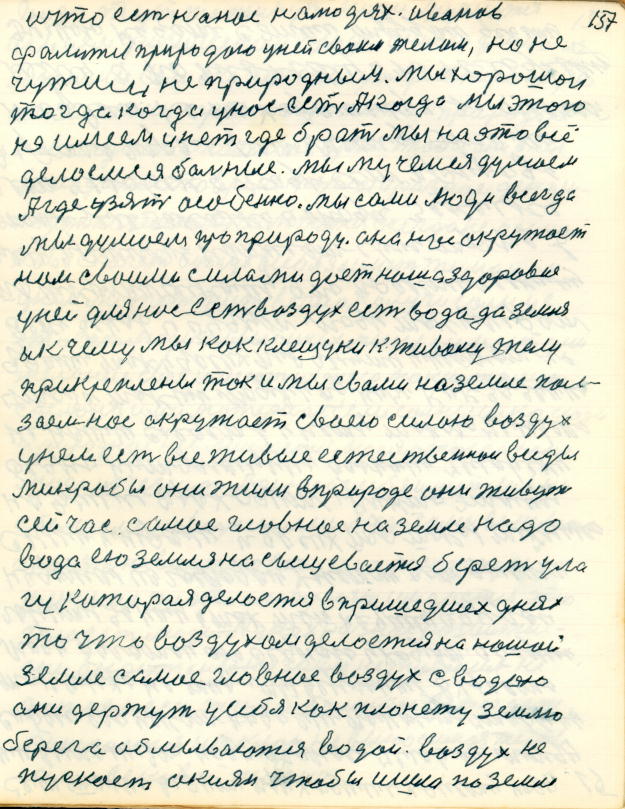 137
ичто ест наное на людях. иванов
фалитил природого уней своим телом, но не
чужим, не природным. мы хорошои
тогда когда унос ест Акогда мы этого
не имеем инет где брат мы наэто всё
делоемся болные. мы мучемся думоем
Агде взять особенно. мы сами люди всегда
мы думоем пра природу. ана нас окружает
нам своими силами дает ноша здоровие
уней длянос ест воздух ест вода да земля
ак чему мы кок клещуки к живому телу
прикреплены ток и мы свами на земле пол-
заем нос акружает своею силою воздух
унем ест все живые естественнои виды
микробы они жили вприроде они живут
сей час. самое гловное на земле надо
вода ею земля насыщевается берет ула
гу которая делоетя впришедших днях
то что воздухом делоется на ношой
земле самое гловное воздух с водою
ани держут усебя как плонету землю
берега обмываются водой. воздух не
пускоет океян чтобы ишла по земле